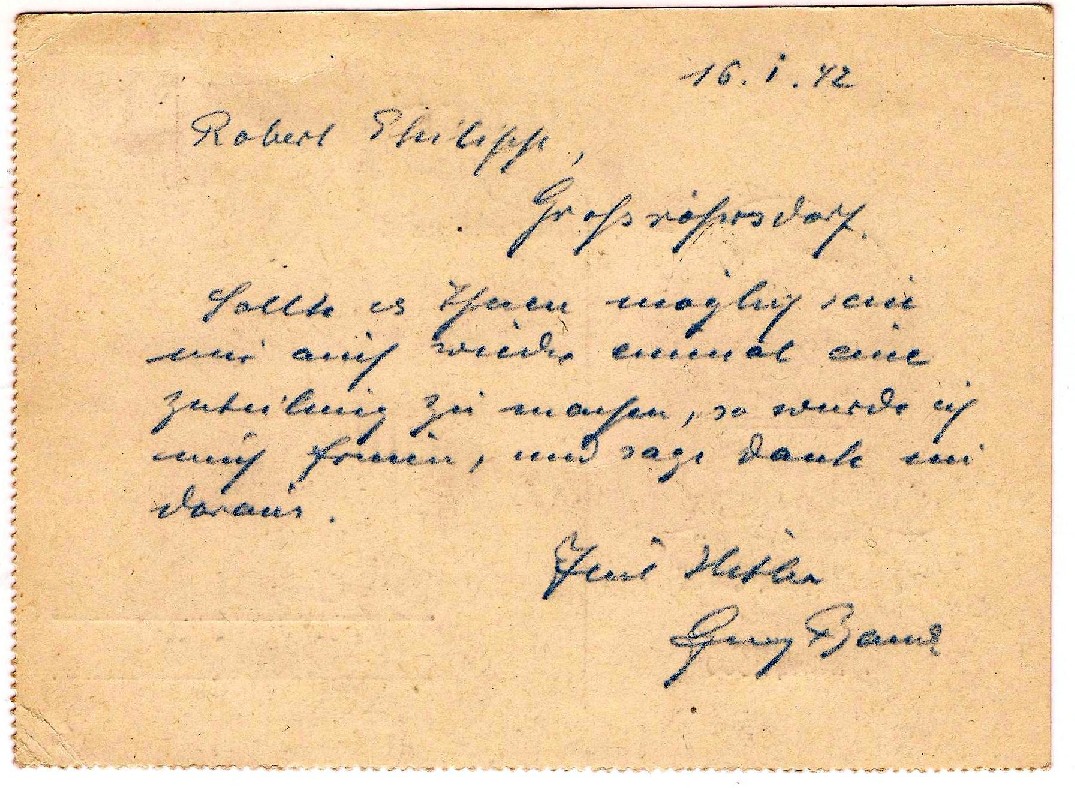 16.1.42
Robert Philipp,
Grossröhrsdorf.
Sollte es Ihnen möglich sein
mir auch wieder einmal eine
Zuteilung zu machen, so würde ich
mich freuen, und sage Dank im
voraus.
Heil Hitler
Georg